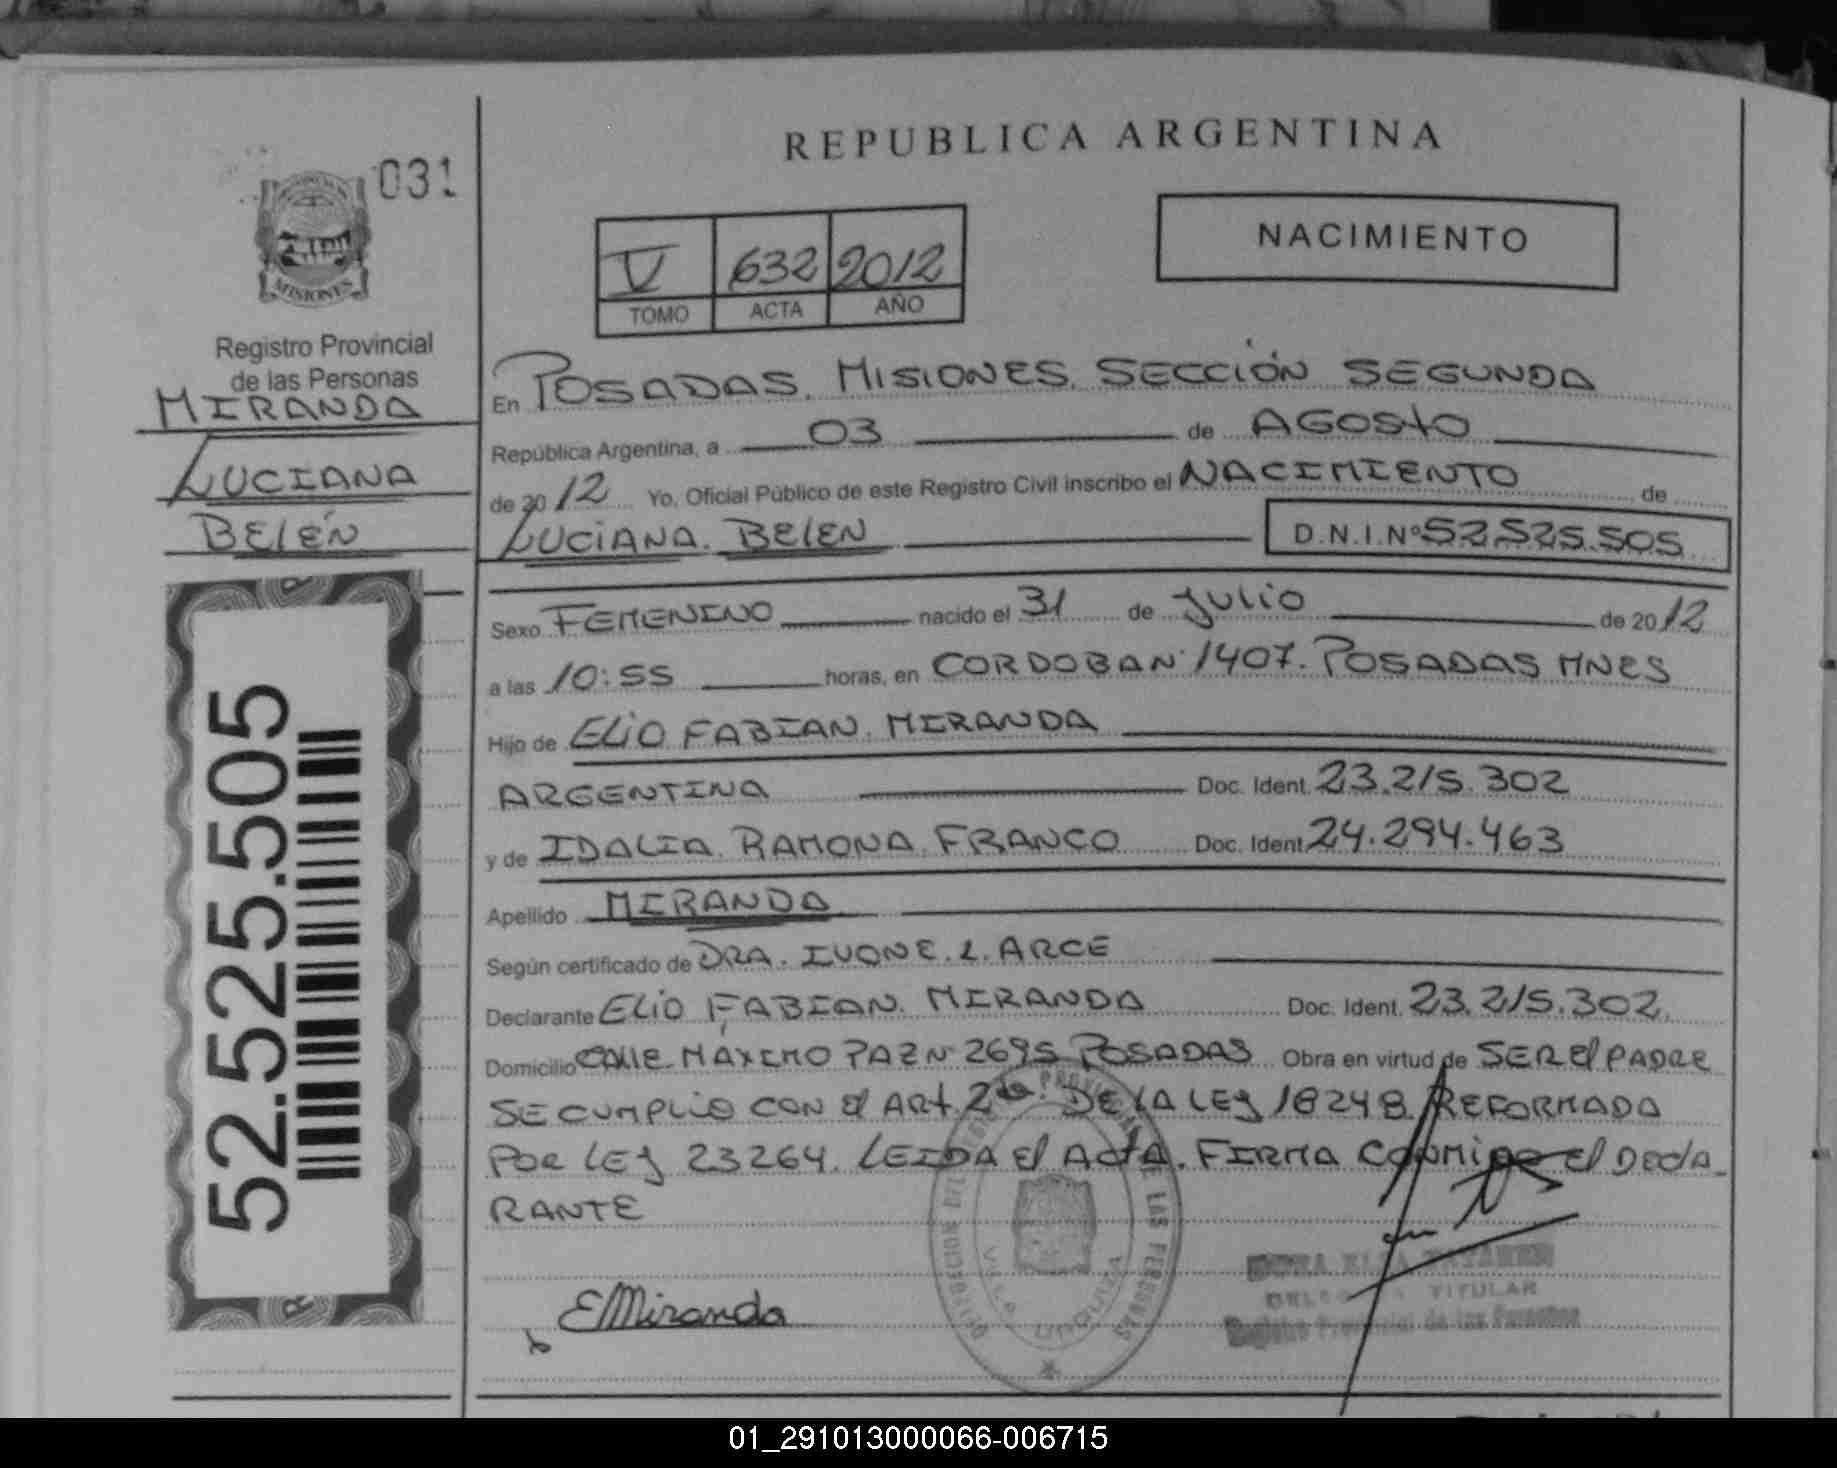 REPUBLICA ARGENTINA
031
NACIMIENTO
V 632 2012
TOMO ACTA AÑO
MISIONES
Registro Provincial
de las Personas
MIRANDA
LUCIANA
BELÉN
52.525.505
En POSADAS. MISIONES. SECCIÓN SEGUNDA
República Argentina, a 03 de AGOSTO
de 2012 Yo, Oficial Público de este Registro Civil inscribo el NACIMIENTO de
LUCIANA. BELEN D.N.I.Nº 52.525.505
Sexo FEMENINO nacido el 31 de JULIO de 2012
a las 10:55 horas, en CORDOBA Nº 1407. POSADAS MNES
Hijo de ELIO FABIAN. MIRANDA
ARGENTINA Doc. Ident. 23.215.302
y de IDALIA. RAMONA. FRANCO Doc. Ident. 24.294.463
Apellido MIRANDA
Según certificado de DRA. IVONE. L. ARCE
Declarante ELIO FABIAN. MIRANDA Doc. Ident. 23.215.302.
Domicilio CALLE MÁXIMO PAZ Nº 2695 POSADAS Obra en virtud de SER El PADRE
SE CUMPLIO CON El ART. 2do. DE LA LEY 18248. REFORMADA
POR LEY 23264. LEIDA El ACTA. FIRMA CONMIGO El DECLA-
RANTE
EMiranda
TITULAR
Registro Provincial de las Personas
01_291013000066-006715